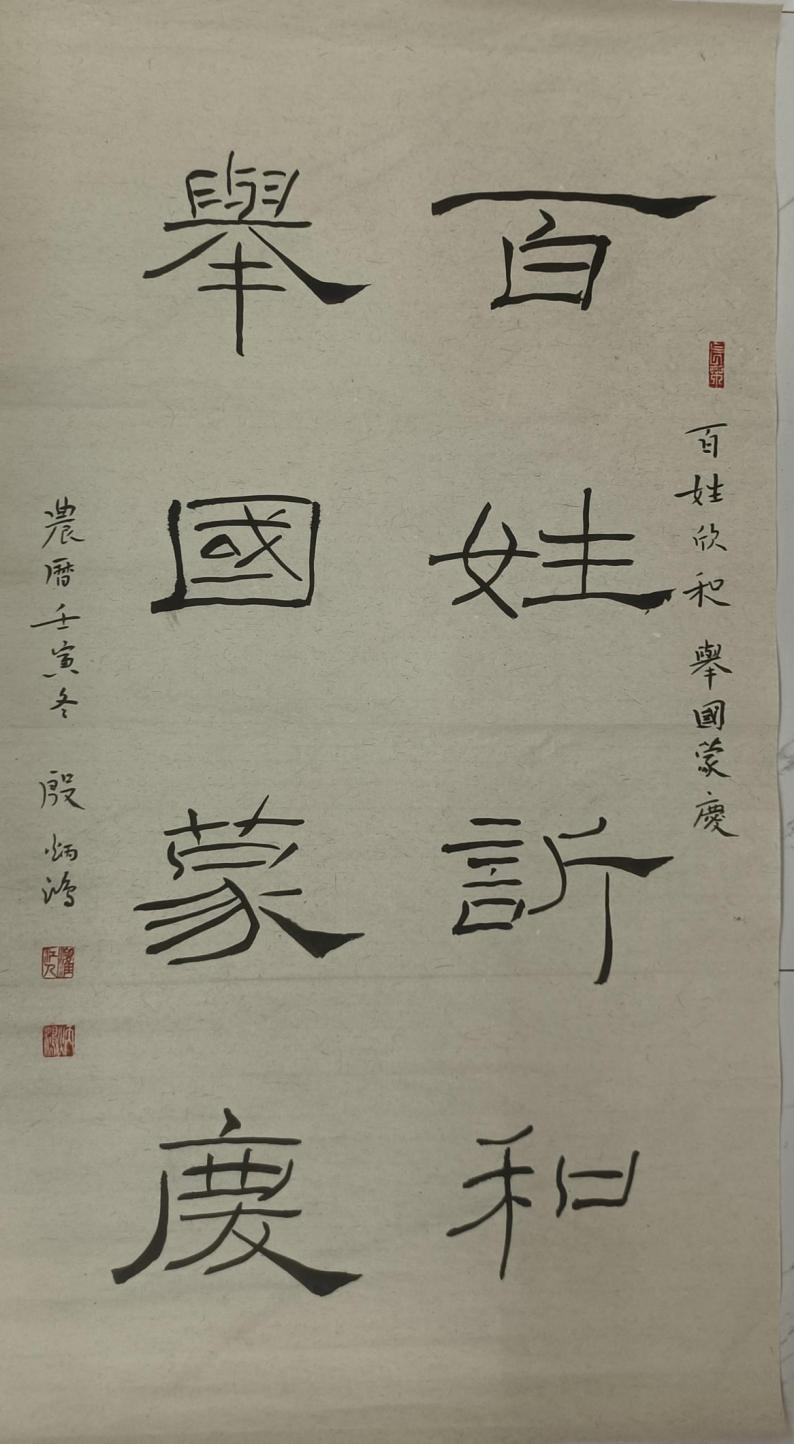 百姓欣和 舉國蒙慶
百姓訢和
舉國蒙慶
農曆壬寅冬 殷炳鴻